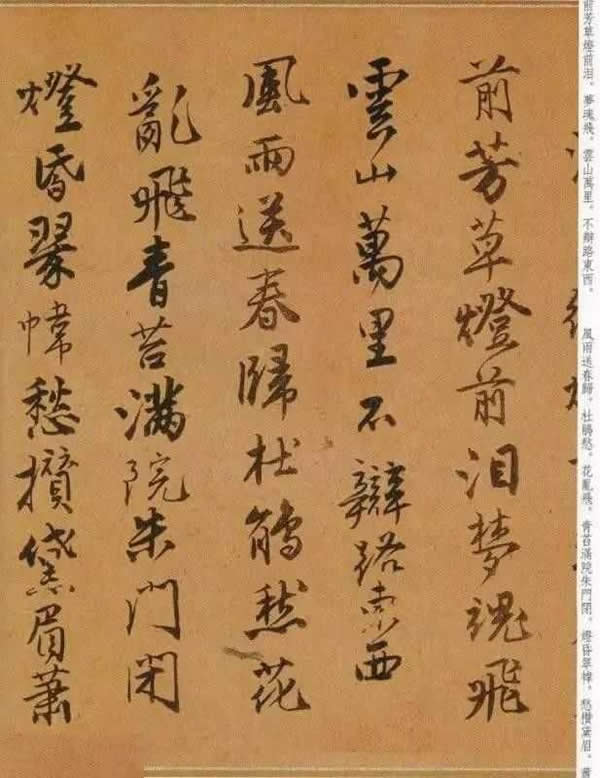 前芳草燈前淚。夢魂飛。雲山萬里。不辯路東西。 風雨送春歸。杜鵑愁。花亂飛。青苔滿院朱門閉。燈昏翠幃。愁攢黛眉。蕭
前芳草燈前泪梦魂飛
雲山萬里不辯路东西
風雨送春歸杜鵑愁花
亂飛青苔满院朱門闭
燈昏翠幃愁攢黛眉蕭